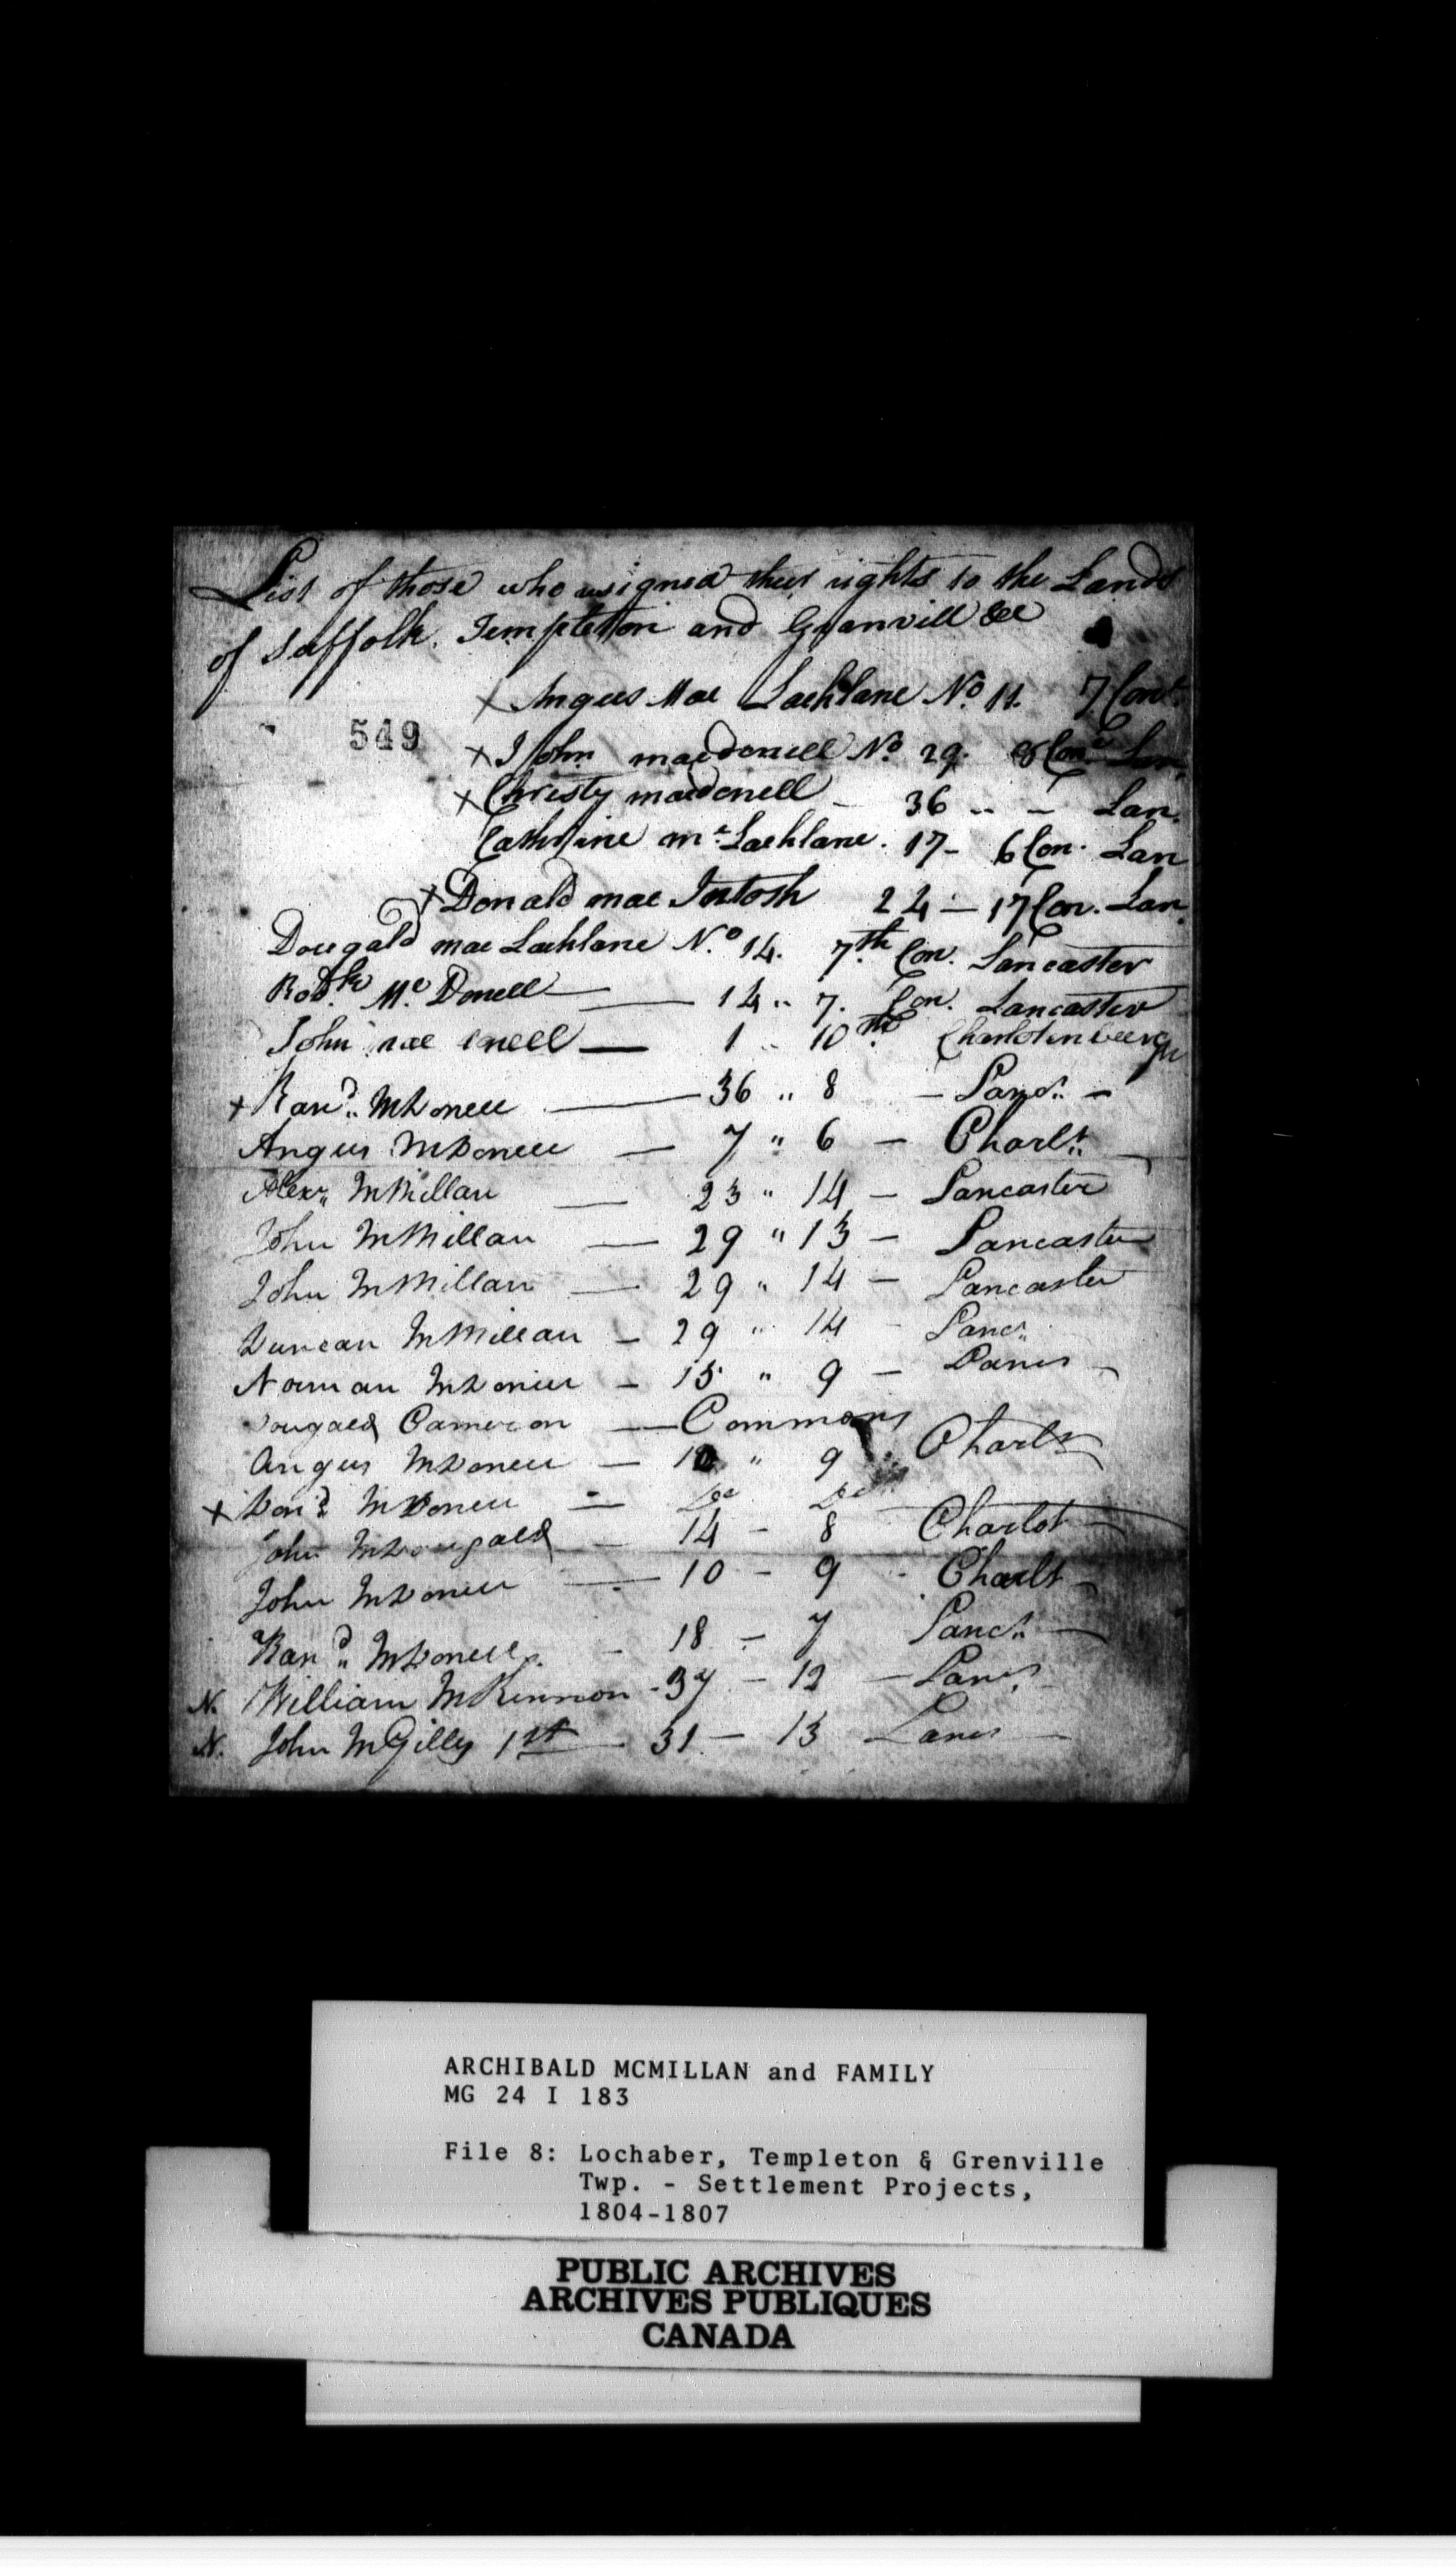 List of those who asigned their rights to the Lands
of Suffolk. Templeton and Granvill &c
+ Angus Mac Lachlane No. 11. 7 Con.
549
+ John macdonell No. 29. 8 Con. Lan.
+ Christy macdonell - 36 .. - Lan.
Cathrine mc Lachlane. 17 - 6 Con. Lan
+ Donald mac Intosh 24 - 17 Con. Lan.
Dougald mac Lachlane No. 14. 7.th Con. Lancaster
Rodk Mc Donell — 14 .. 7. Con. Lancaster
John mac — 1 .. 10th Charlotinburgh
+ Rand. McDonell — 36 " 8 — Lancr. —
Angus McDonell — 7 " 6 — Charlt.
Alexr. McMillan — 23 " 14 — Lancaster
John McMillan — 29 " 13 — Lancaster
John McMillan — 29 " 14 — Lancaster
Duncan McMillan — 29 " 14 - Lancr.
Norman McDonell — 15 " 9 — Lancr
Dougald Cameron — Commons
Angus McDonell — " 9 Charlt
+ Dond. McDonell — Do Do
John McDougald — 14 - 8 Charlot
John McDonell — 10 - 9 - Charlt
Rand. McDonell - 18 - 7 Lancr.
N. William McKinnon - 37 - 12 - Lancr.
N. John McGilly 1st — 31 — 13 Lancr —
ARCHIBALD MCMILLAN and FAMILY
MG 24 I 183
File 8: Lochaber, Templeton & Grenville
Twp. - Settlement Projects,
1804-1807
PUBLIC ARCHIVES
ARCHIVES PUBLIQUES
CANADA